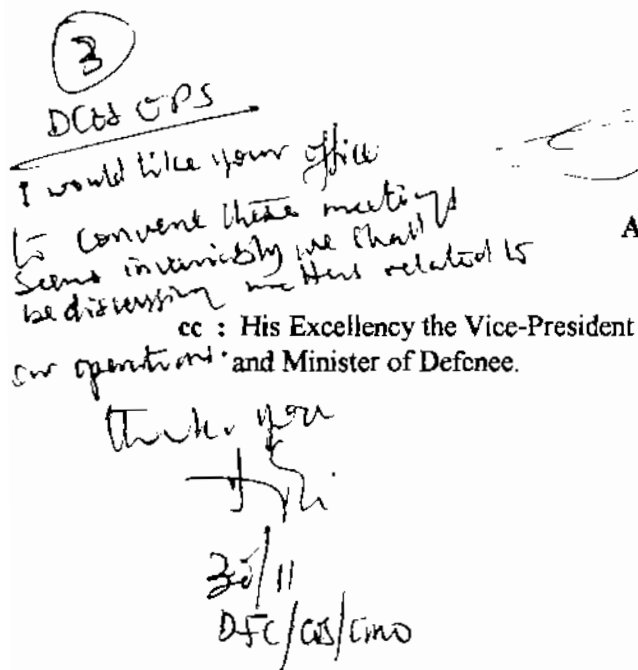 3
DCOS OPS
I would like your office
to convene these meetings
Seems invariably we shall
be discussing matters related to
our operations.
A
cc : His Excellency the Vice-President
and Minister of Defence.
Thank you
30/11
DFC/COS/